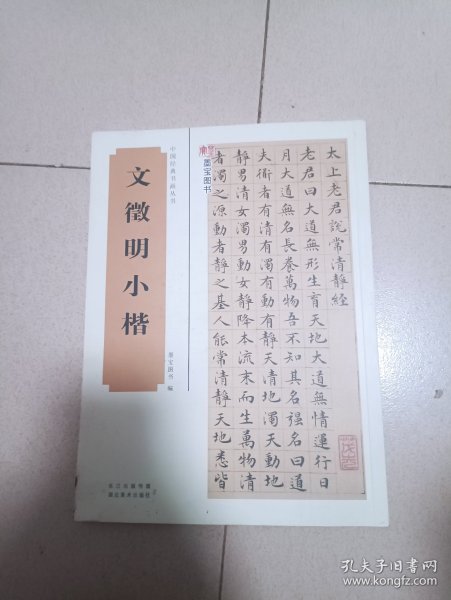 中国经典书画丛书
文徵明小楷
墨宝图书 编
长江出版传媒
湖北美术出版社
墨宝图书
太上老君說常清靜經
老君曰大道無形生育天地大道無情運行日
月大道無名長養萬物吾不知其名強名曰道
夫衜者有清有濁有動有靜天清地濁天動地
靜男清女濁男動女靜降本流末而生萬物清
者濁之源動者靜之基人能常清靜天地悉皆
孔夫子旧书网
www.kongfz.com